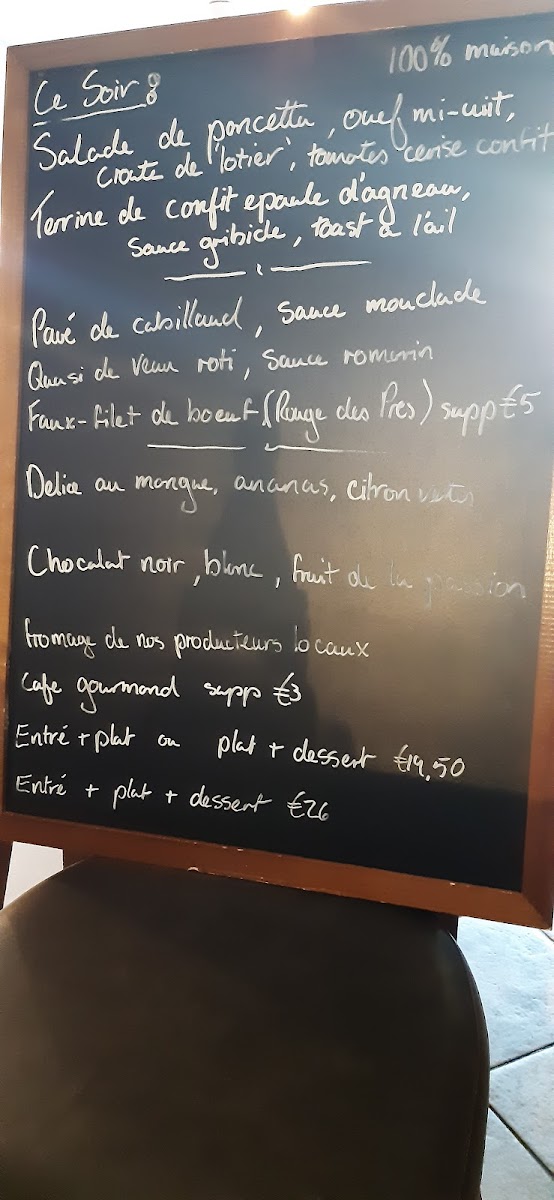 100% maison
Ce Soir :
Salade de pancetta, ouef mi-cuit,
croute de 'lotier', tomates cerise confit
Terrine de confit epaule d'agneau,
sauce gribide, toast a l'ail
Pavé de cabillaud, sauce mouclade
Quasi de veau roti, sauce romarin
Faux-filet de boeuf (Rouge des Prés) supp €5
Delice au mangue, ananas, citron
Chocolat noir, blanc, fruit de la passion
fromage de nos producteurs locaux
Cafe gourmand supp €3
Entré + plat ou plat + dessert €19,50
Entré + plat + dessert €26